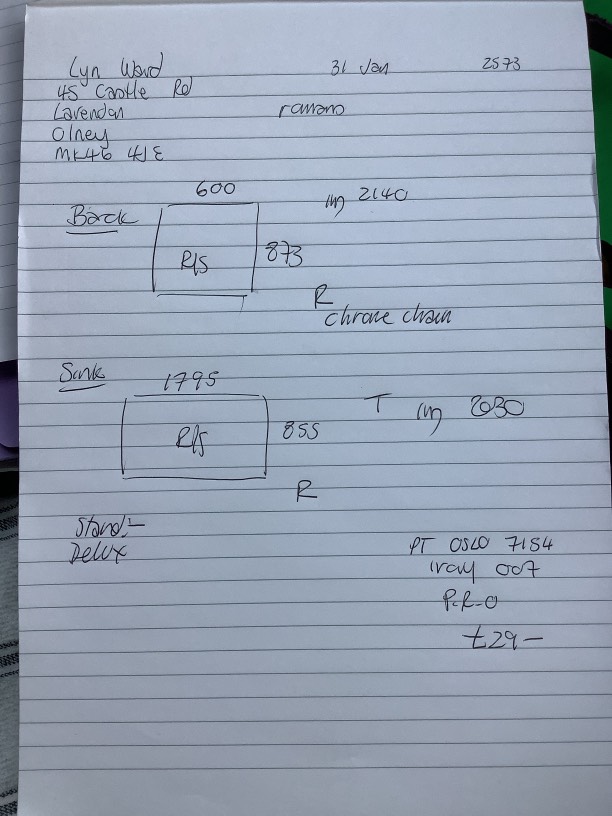 Lyn Ward 31 Jan 2573
45 Castle Rd
Lavendon
Olney
MK46 4JE
romano
600
Back
2140
R/S
873
R
chrome chain
Sink
1795
T 2030
R/S
855
R
Stand:-
Delux
PT OSLO 7154
007
P-R-O
£29-